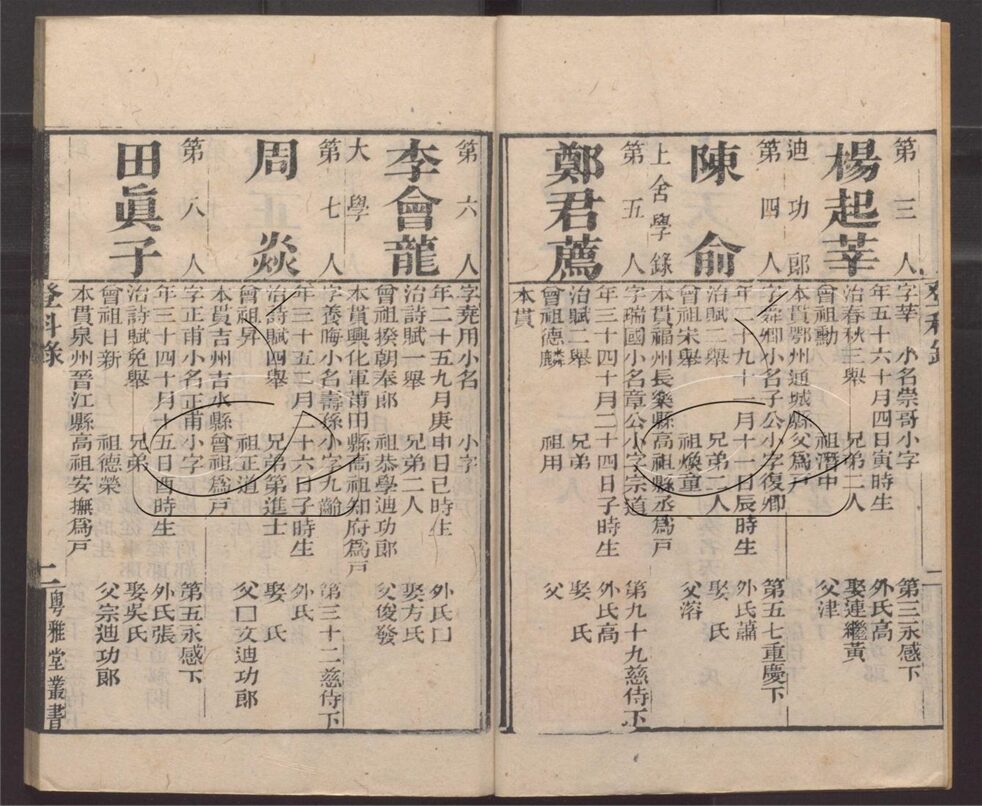 第三人
楊起莘
字莘 小名崇哥小字 第三永感下
年五十六月四日寅時生 外氏高
治春秋三舉 兄弟二人 娶連繼黃
曾祖勳 祖潛中 父津
本貫鄂州通城縣父爲戶
迪功郎
第四人
陳俞
卿小名子公小字復卿 第五七重慶下
年二十九十二月十一日辰時生 外氏蕭
治賦二舉 兄弟二人 娶 氏
曾祖宋舉 祖煥童 父溶
本貫福州長樂縣高祖縣丞爲戶
上舍學錄
第五人
鄭君薦
字瑞國小名章公小字宗道 第九十九慈侍下
年三十四十月二十四日子時生 外氏高
治賦二舉 兄弟 娶 氏
曾祖德麟 祖用 父
本貫
登科錄
二
第六人
李會龍
字堯用小名 小字
年二十五九月庚申日巳時生 外氏口
治詩賦一舉 兄弟二人 娶方氏
曾祖揆朝奉郎 祖恭學迪功郎 父俊發
本貫興化軍莆田縣高祖知府爲戶
大學
第七人
周焱
字養晦小名壽孫小字九齡 第三十二慈侍下
年三十五二月二十六日子時生 外氏
治詩賦四舉 兄弟第進士 娶 氏
曾祖昇 祖正道 父口文迪功郎
本貫吉州吉水縣曾祖爲戶
第八人
田眞子
字正甫小名正甫小字 第五永感下
年三十四十月十五日酉時生 外氏張
治詩賦免舉 兄弟 娶吳氏
曾祖日新 祖德榮 父宗迪功郎
本貫泉州晉江縣高祖安撫爲戶
登科錄
二
粵雅堂叢書